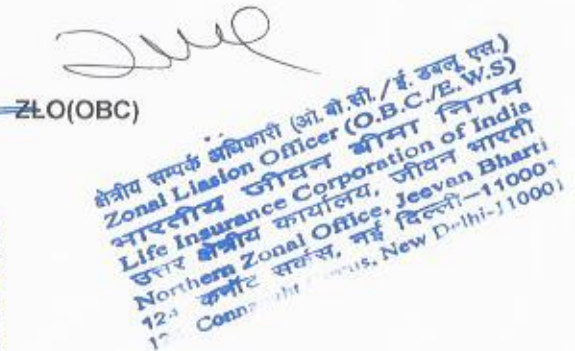 ZLO(OBC)
क्षेत्रीय सम्पर्क अधिकारी (ओ.बी.सी./ई. डबलू. एस.)
Zonal Liasion Officer (O.B.C./E.W.S)
भारतीय जीवन बीमा निगम
Life Insurance Corporation of India
उत्तर क्षेत्रीय कार्यालय, जीवन भारती
Northern Zonal Office, Jeevan Bharti
कनॉट सर्कस, नई दिल्ली-11000
New Delhi-11000